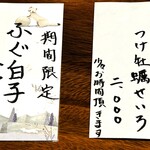 つけ牡蠣せいろ
二、〇〇〇
少々お時間頂きます
期間限定
ふぐ白子